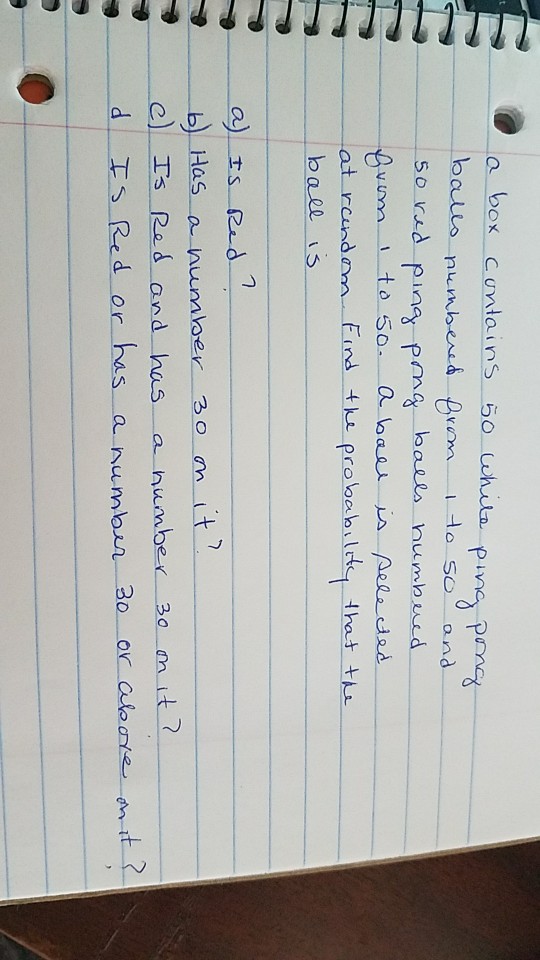 a box contains 50 white ping pong
balls numbered from 1 to 50 and
50 red ping pong balls numbered
from 1 to 50. a ball is selected
at random. Find the probability that the
ball is
a) Is Red?
b) Has a number 30 on it?
c) Is Red and has a number 30 on it?
d Is Red or has a number 30 or above on it?